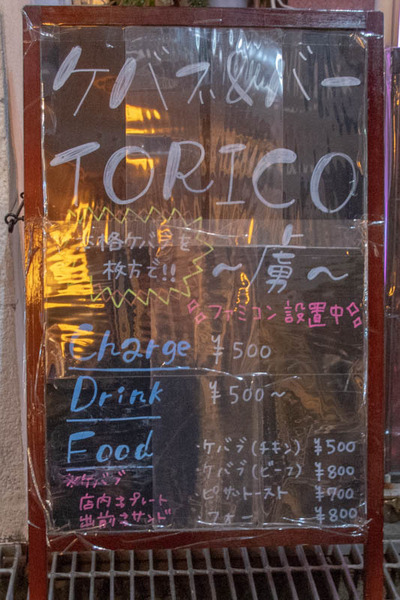 ケバブ&バー
TORICO
本格ケバブを
枚方で!!
～虜～
ファミコン設置中
Charge ¥500
Drink ¥500～
Food
・ケバブ(チキン) ¥500
・ケバブ(ビーフ) ¥800
・ピザトースト ¥700
・フォー ¥800
※ケバブ
店内→プレート
出前→サンド